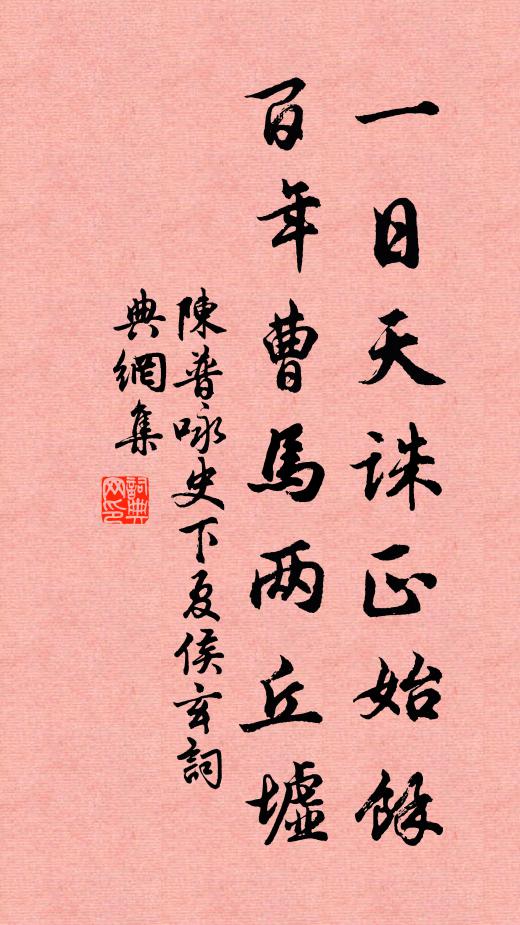 一日天誅正始餘
百年曹馬两丘墟
陳普咏史下夏侯玄詞
典網集
詞典网印